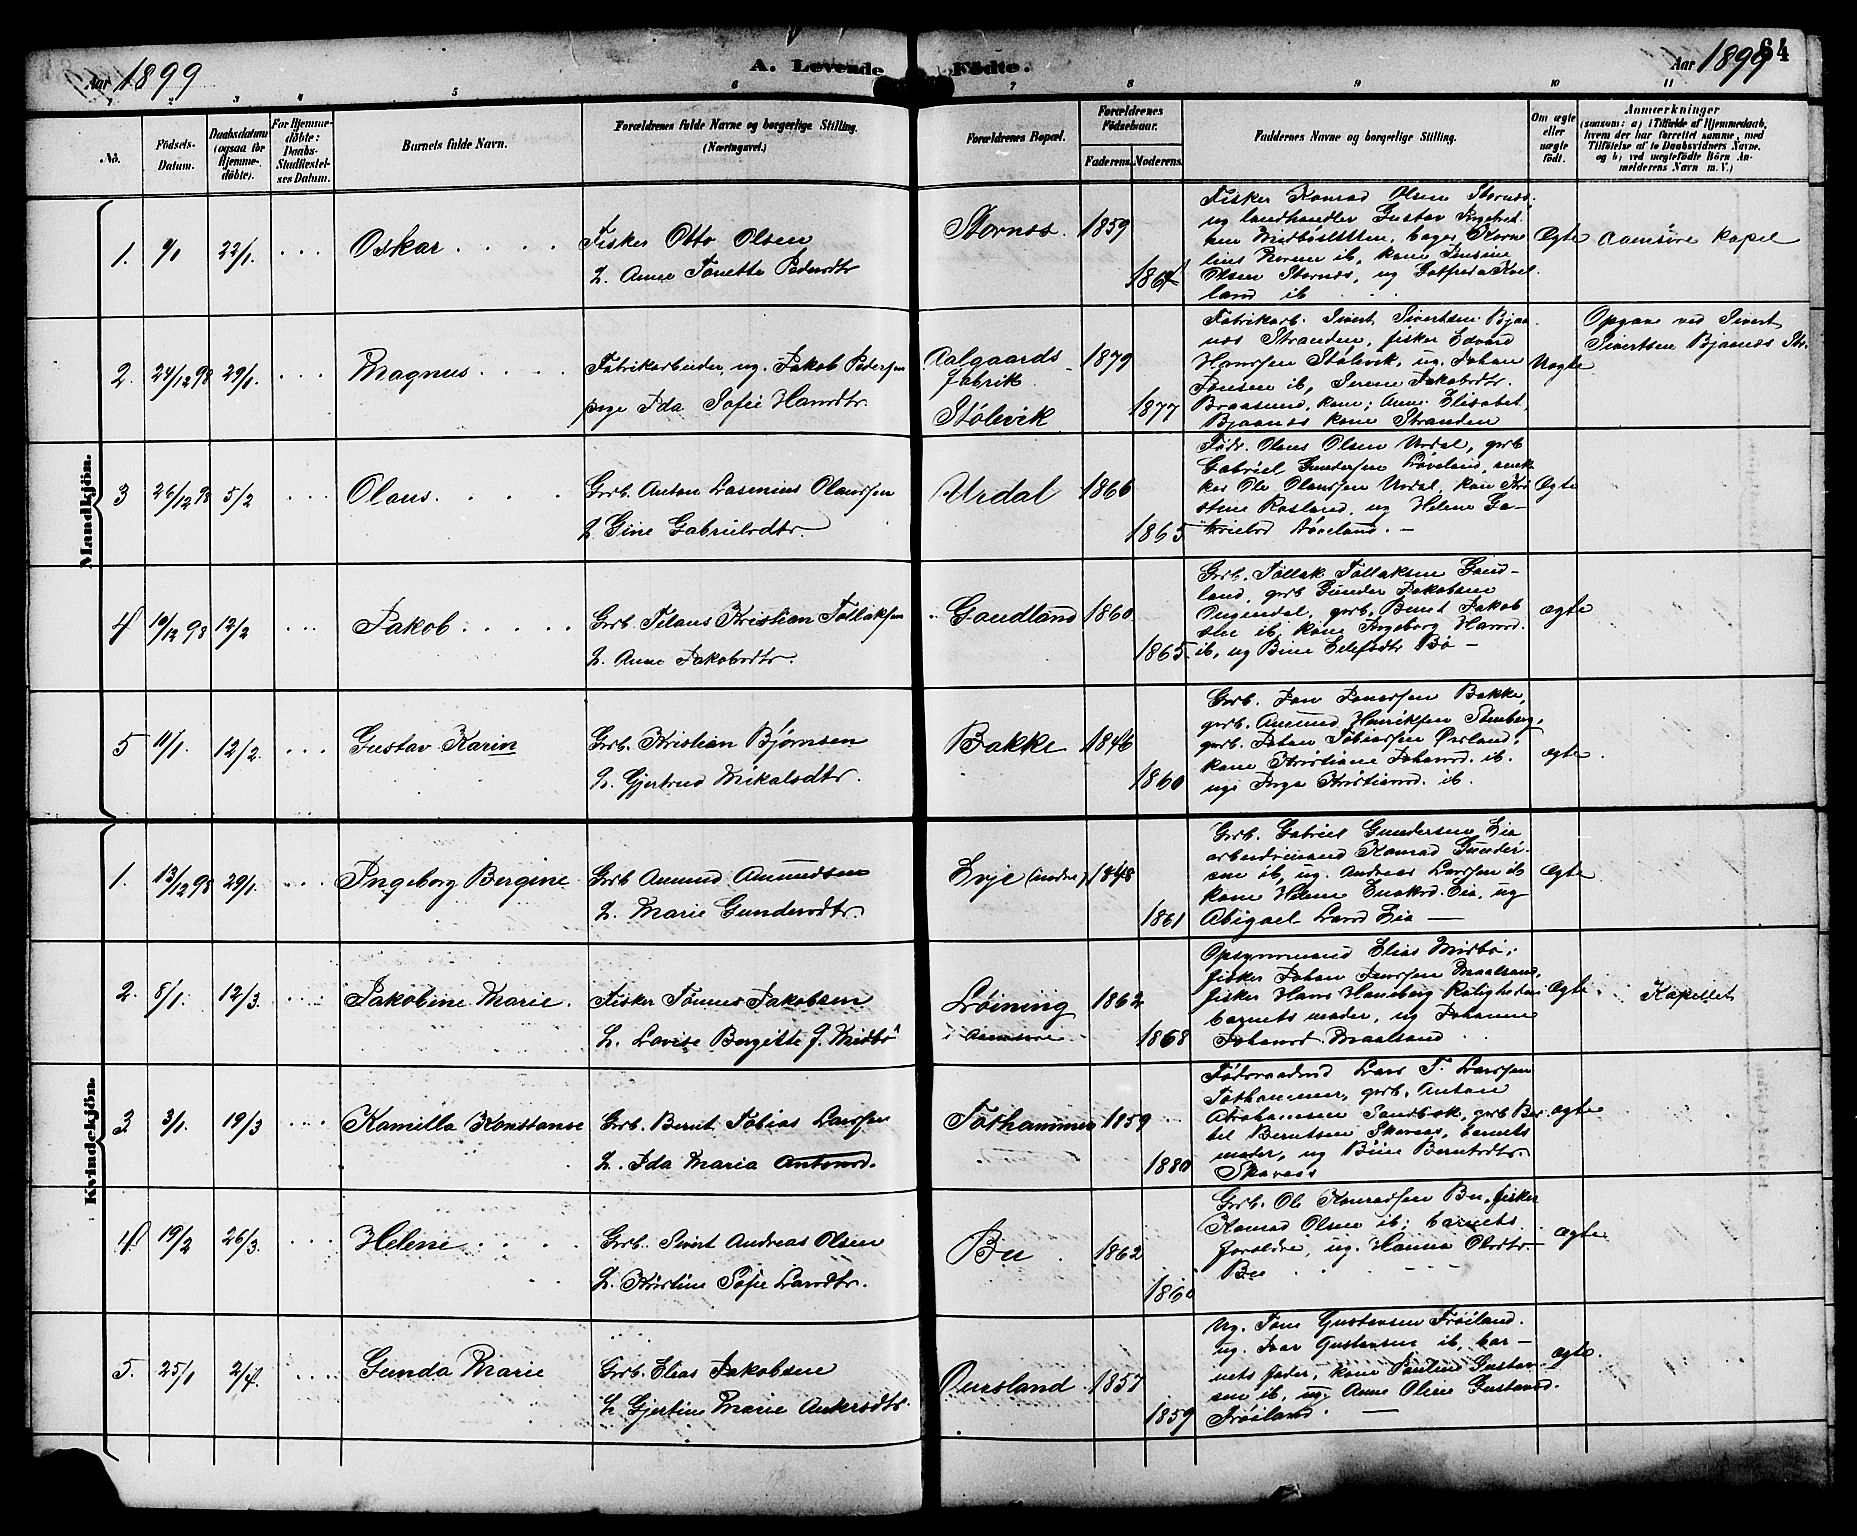 Aar 1899
A. Levende Fødte.
Aar 1899
64
1 2 3 4 5 6 7 8 9 10 11
No.
Fødsels-
Datum.
Daabsdatum
(ogsaa for
Hjemme-
døbte).
For Hjemme-
døbte:
Daabs-
Stadfæstel-
ses Datum.
Barnets fulde Navn.
Forældrenes fulde Navne og borgerlige Stilling.
(Næringsvei.)
Forældrenes Bopæl.
Forældrenes
Fødselsaar.
Faderens. Moderens.
Faddernes Navne og borgerlige Stilling.
Om ægte
eller
uægte
født.
Anmærkninger
(saasom: a) i Tilfælde af Hjemmedaab,
hvem der har forrettet samme, med
Tilføielse af to Daabsvidners Navne.
og b) ved uægtefødte Börn An-
melderens Navn m. V.)
Mandkjön.
1. 9/1 22/1. Oskar
Fisker Otto Olsen
H. Anne Tonette Pedersdtr
Stornes. 1859
1864
Fisker Konrad Olsen Stornes,
og landhandler Gustav Ingebret-
sen Midbö
Olsen Stornes, og
land ib
Ægte
Aamsöre kapel
2. 24/12 98 29/1. Magnus
Fabrikarbeider, ug. Jakob Pedersen
pige Ida Sofie Hansdtr
Aalgaards
fabrik
Stölsvik
1879
1877
Fabrikarb. Sivert Sivertsen Bjaa-
nes Stranden, fisker Edvard
Hanssen Stölsvik, ug. Johan
Jonsen ib, Serine Jakobsdtr.
Braasund, kone; Anne Elisabet
Bjaanes kone Stranden
Uægte
Opgave ved Sivert
Sivertsen Bjaanes Str.
3 26/12 98 5/2 Olaus
Grb. Anton Rasmus Olaussen
H Gine Gabrielsdtr.
Urdal 1866
1865
Föd. Olaus Olsen Urdal, grb
Gabriel Gundersen Löveland, enke-
kar Ole Olaussen Urdal, kone Kri-
stine Rosland, og Helene Ga-
brielsd Löveland. -
Ægte
4 10/12 98 12/2 Jakob
Grb. Tilaus Kristian Tollaksen
H. Anne Jakobsdtr.
Gaudland 1860
1865
Grb. Tollak Tollaksen Gaud-
land, grb Gunder Jakobsen
grb. Bernt Jakob
ib, kone Ingeborg Hansd.
ib, og Bö -
ægte
5 11/1. 12/2. Gustav Karin
Grb. Kristian Björnsen
H. Gjertrud Mikalsdtr.
Bakke 1846
1860
Grb. Jon Jonassen Bakke,
grb. Amund Henriksen Stenberg,
grb. Johan Tobiassen
kone Kristiane Johansd. ib.
pige Inga Kristiansd. ib.
ægte
Kvindekjön.
1. 13/12 98 29/1. Ingeborg Bergine
Grb Amund Amundsen
H. Marie Gundersdtr.
Evje (indre) 1848
1861
Grb. Gabriel Gundersen Eia
arbeidsmand Konrad Gunder-
sen ib, ug. Andreas Larssen ib
kone Helene Enokd. Eia, og
Abigael Larsd Eia
Ægte
2. 8/1. 12/3. Jakobine Marie.
Fisker Tönnes Jakobsen
H. Lovise Bergitte J. Midbö
Löining
i Aamsöre
1862
1868
Opsynsmand Elias Midbö;
fisker Johan Jenssen Maalsand,
fisker Hans Haneberg Roligheden
barnets moder, og Johanne
Johansd. Maalsand
ægte
Kapellet
3 3/1. 19/3 Kamilla Konstanse
Grb. Bernt Tobias Larssen
H. Ida Maria Antonsd.
Tothammer 1859
1880
Födsraadsd Lars T. Larssen
Tothammer, grb. Anton
Abrahamsen Sandbæk, grb Ber-
tel Berntsen Skaraas, barnets
moder, og Berntsdtr
Skaraas
ægte
4 19/2 26/3. Helene
Grb. Sivert Andreas Olsen
H. Kristine Sofie Larsdtr.
Bu 1862
1860
Grb. Ole Konradsen Bu, fisker
Konrad Olsen ib; barnets
forældre, og. Hanna Olsdtr.
Bu
ægte
5. 25/1 2/4. Gunda Marie
Grb. Elias Jakobsen
H Gjertine Marie Ankersdtr.
1857
1859
Ug. Tom Gustavsen Fröiland.
ug. Ivar Gustavsen ib, bar-
nets fader, kone Pauline Gustav-
sen ib, og Anne Oline Gustavsd.
Fröiland.
ægte.